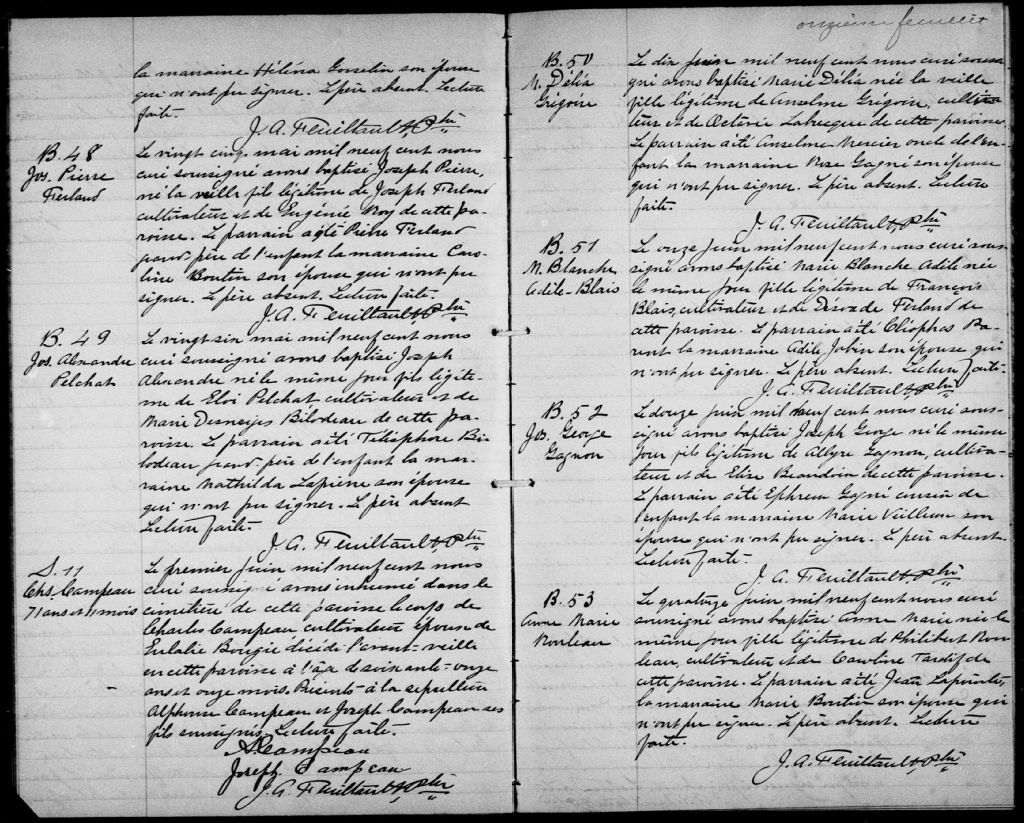 la marraine Hélèna Gosselin son épouse
qui n'ont pu signer. Le père absent. Lecture
faite.
J. A. Feuiltault, Ptre
B. 48
Jos. Pierre
Ferland
Le vingt cinq mai mil neuf cent nous
curé soussigné avons baptisé Joseph Pierre,
né la veille fils légitime de Joseph Ferland
cultivateur et de Eugénie Roy de cette pa-
roisse. Le parrain a été Pierre Ferland
grand père de l'enfant la marraine Caro-
line Boutin son épouse qui n'ont pu
signer. Le père absent. Lecture faite.
J. A. Feuiltault, Ptre
B. 49
Jos. Alexandre
Pelchat
Le vingt six mai mil neuf cent nous
curé soussigné avons baptisé Joseph
Alexandre né le même jour fils légiti-
me de Eloi Pelchat cultivateur et de
Marie Desneiges Bilodeau de cette pa-
roisse. Le parrain a été Télesphore Bi-
lodeau grand père de l'enfant la mar-
raine Mathilda Lapierre son épouse
qui n'ont pu signer. Le père absent
Lecture faite.
J. A. Feuiltault, Ptre
S. 11
Chs. Campeau
71 ans et 11 mois
Le premier juin mil neuf cent nous
curé soussigné avons inhumé dans le
cimetière de cette paroisse le corps de
Charles Campeau cultivateur épouse de
Eulalie Bougie décédé l'avant-veille
en cette paroisse à l'âge de soixante-onze
ans et onze mois. Présents à la sépulture
Alphonse Campeau et Joseph Campeau ses
fils soussignés. Lecture faite.
A. Campeau
Joseph Campeau
J. A. Feuiltault, Ptre
onzième feuillet
B. 50
M. Délia
Grégoire
Le dix juin mil neuf cent nous curé soussi
gné avons baptisé Marie Délia née la veille
fille légitime de Anselme Grégoire, cultiva-
teur et de Octavie Labrecque de cette paroisse.
Le parrain a été Anselme Mercier oncle de l'en-
fant la marraine Rose Gagné son épouse
qui n'ont pu signer. Le père absent. Lecture
faite.
J. A. Feuiltault, Ptre
B. 51
M. Blanche
Adèle-Blais
Le onze juin mil neuf cent nous curé sous-
signé avons baptisé Marie Blanche Adèle née
le même jour fille légitime de François
Blais, cultivateur et de Ferland de
cette paroisse. Le parrain a été Cléophas Pa-
rent la marraine Adèle Jobin son épouse qui
n'ont pu signer. Le père absent. Lecture faite.
J. A. Feuiltault, Ptre
B. 52
Jos. George
Gagnon
Le douze juin mil neuf cent nous curé sous-
signé avons baptisé Joseph George né le même
jour fils légitime de Allyre Gagnon, cultiva-
teur et de Elise Beaudoin de cette paroisse.
Le parrain a été Ephrem Gagné cousin de
l'enfant la marraine Marie Veilleux son
épouse qui n'ont pu signer. Le père absent.
Lecture faite.
J. A. Feuiltault, Ptre
B. 53
Anne Marie
Rouleau
Le quatorze juin mil neuf cent nous curé
soussigné avons baptisé Anne Marie née le
même jour fille légitime de Philibert Rou-
leau, cultivateur et de Caroline Tardif de
cette paroisse. Le parrain a été Jean Lapointe,
la marraine Marie Boutin son épouse qui
n'ont pu signer. Le père absent. Lecture
faite.
J. A. Feuiltault, Ptre